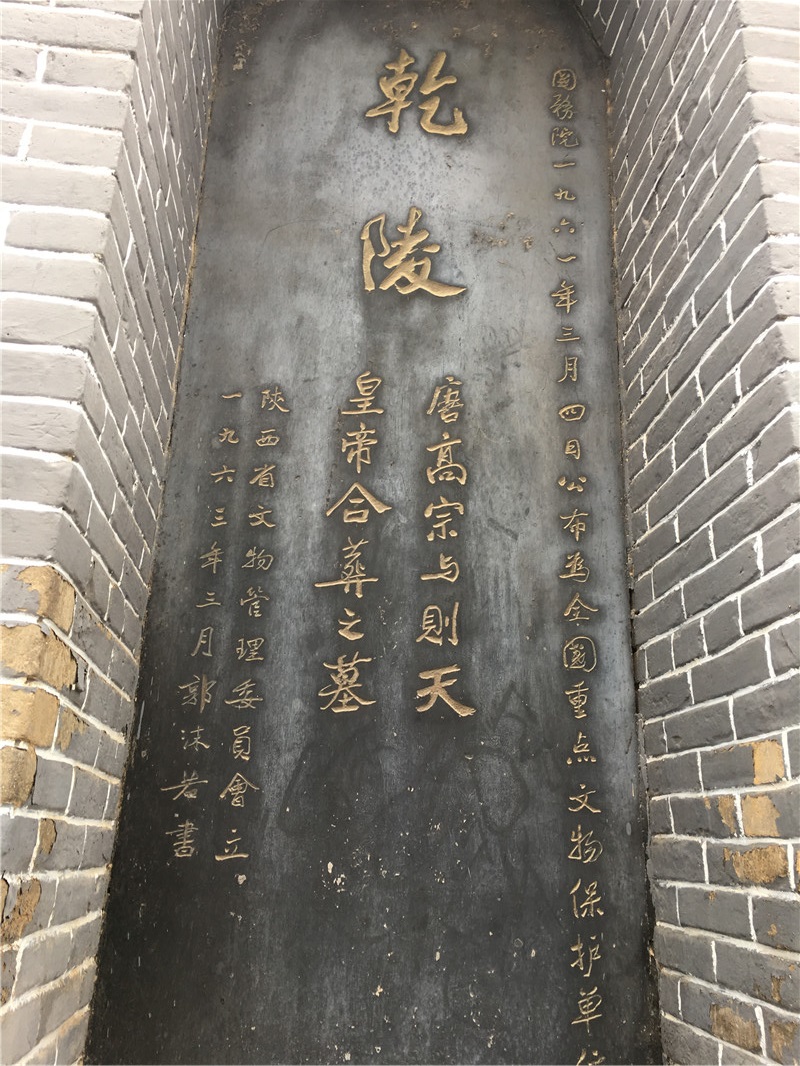 國務院一九六一年三月四日公布為全國重点文物保护单位
乾陵
唐高宗与則天
皇帝合葬之墓
陝西省文物管理委員會立
一九六三年三月郭沫若書